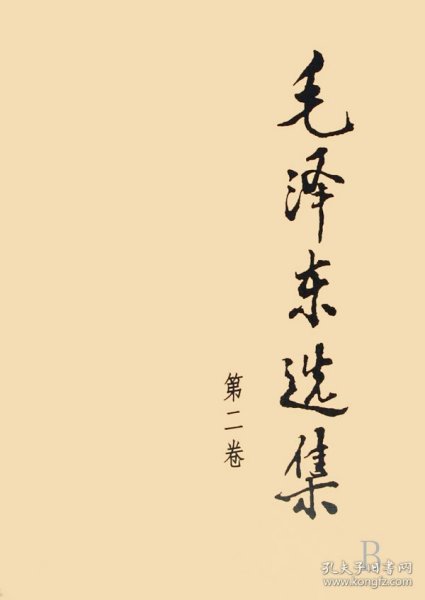 毛泽东选集
第二卷
B
孔夫子旧书网
www.kongfz.com